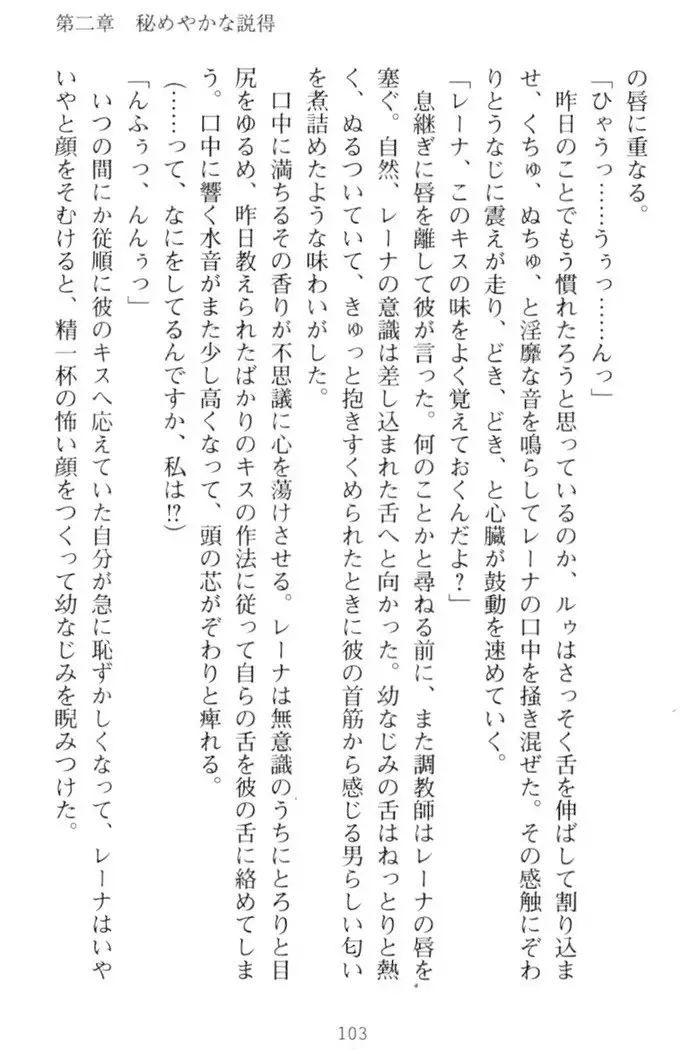 第二章　秘めやかな説得
の唇に重なる。
「ひゃうっ……うぅっ……んっ」
　昨日のことでもう慣れたろうと思っているのか、ルゥはさっそく舌を伸ばして割り込ま
せ、くちゅ、ぬちゅ、と淫靡な音を鳴らしてレーナの口中を掻き混ぜた。その感触にぞわ
りとうなじに震えが走り、どき、どき、と心臓が鼓動を速めていく。
「レーナ、このキスの味をよく覚えておくんだよ？」
　息継ぎに唇を離して彼が言った。何のことかと尋ねる前に、また調教師はレーナの唇を
塞ぐ。自然、レーナの意識は差し込まれた舌へと向かった。幼なじみの舌はねっとりと熱
く、ぬるついていて、きゅっと抱きすくめられたときに彼の首筋から感じる男らしい匂い
を煮詰めたような味わいがした。
　口中に満ちるその香りが不思議に心を蕩けさせる。レーナは無意識のうちにとろりと目
尻をゆるめ、昨日教えられたばかりのキスの作法に従って自らの舌を彼の舌に絡めてしま
う。口中に響く水音がまた少し高くなって、頭の芯がぞわりと痺れる。
（……って、なにをしてるんですか、私は!?）
「んふぅっ、んんぅっ」
　いつの間にか従順に彼のキスへ応えていた自分が急に恥ずかしくなって、レーナはいや
いやと顔をそむけると、精一杯の怖い顔をつくって幼なじみを睨みつけた。
103